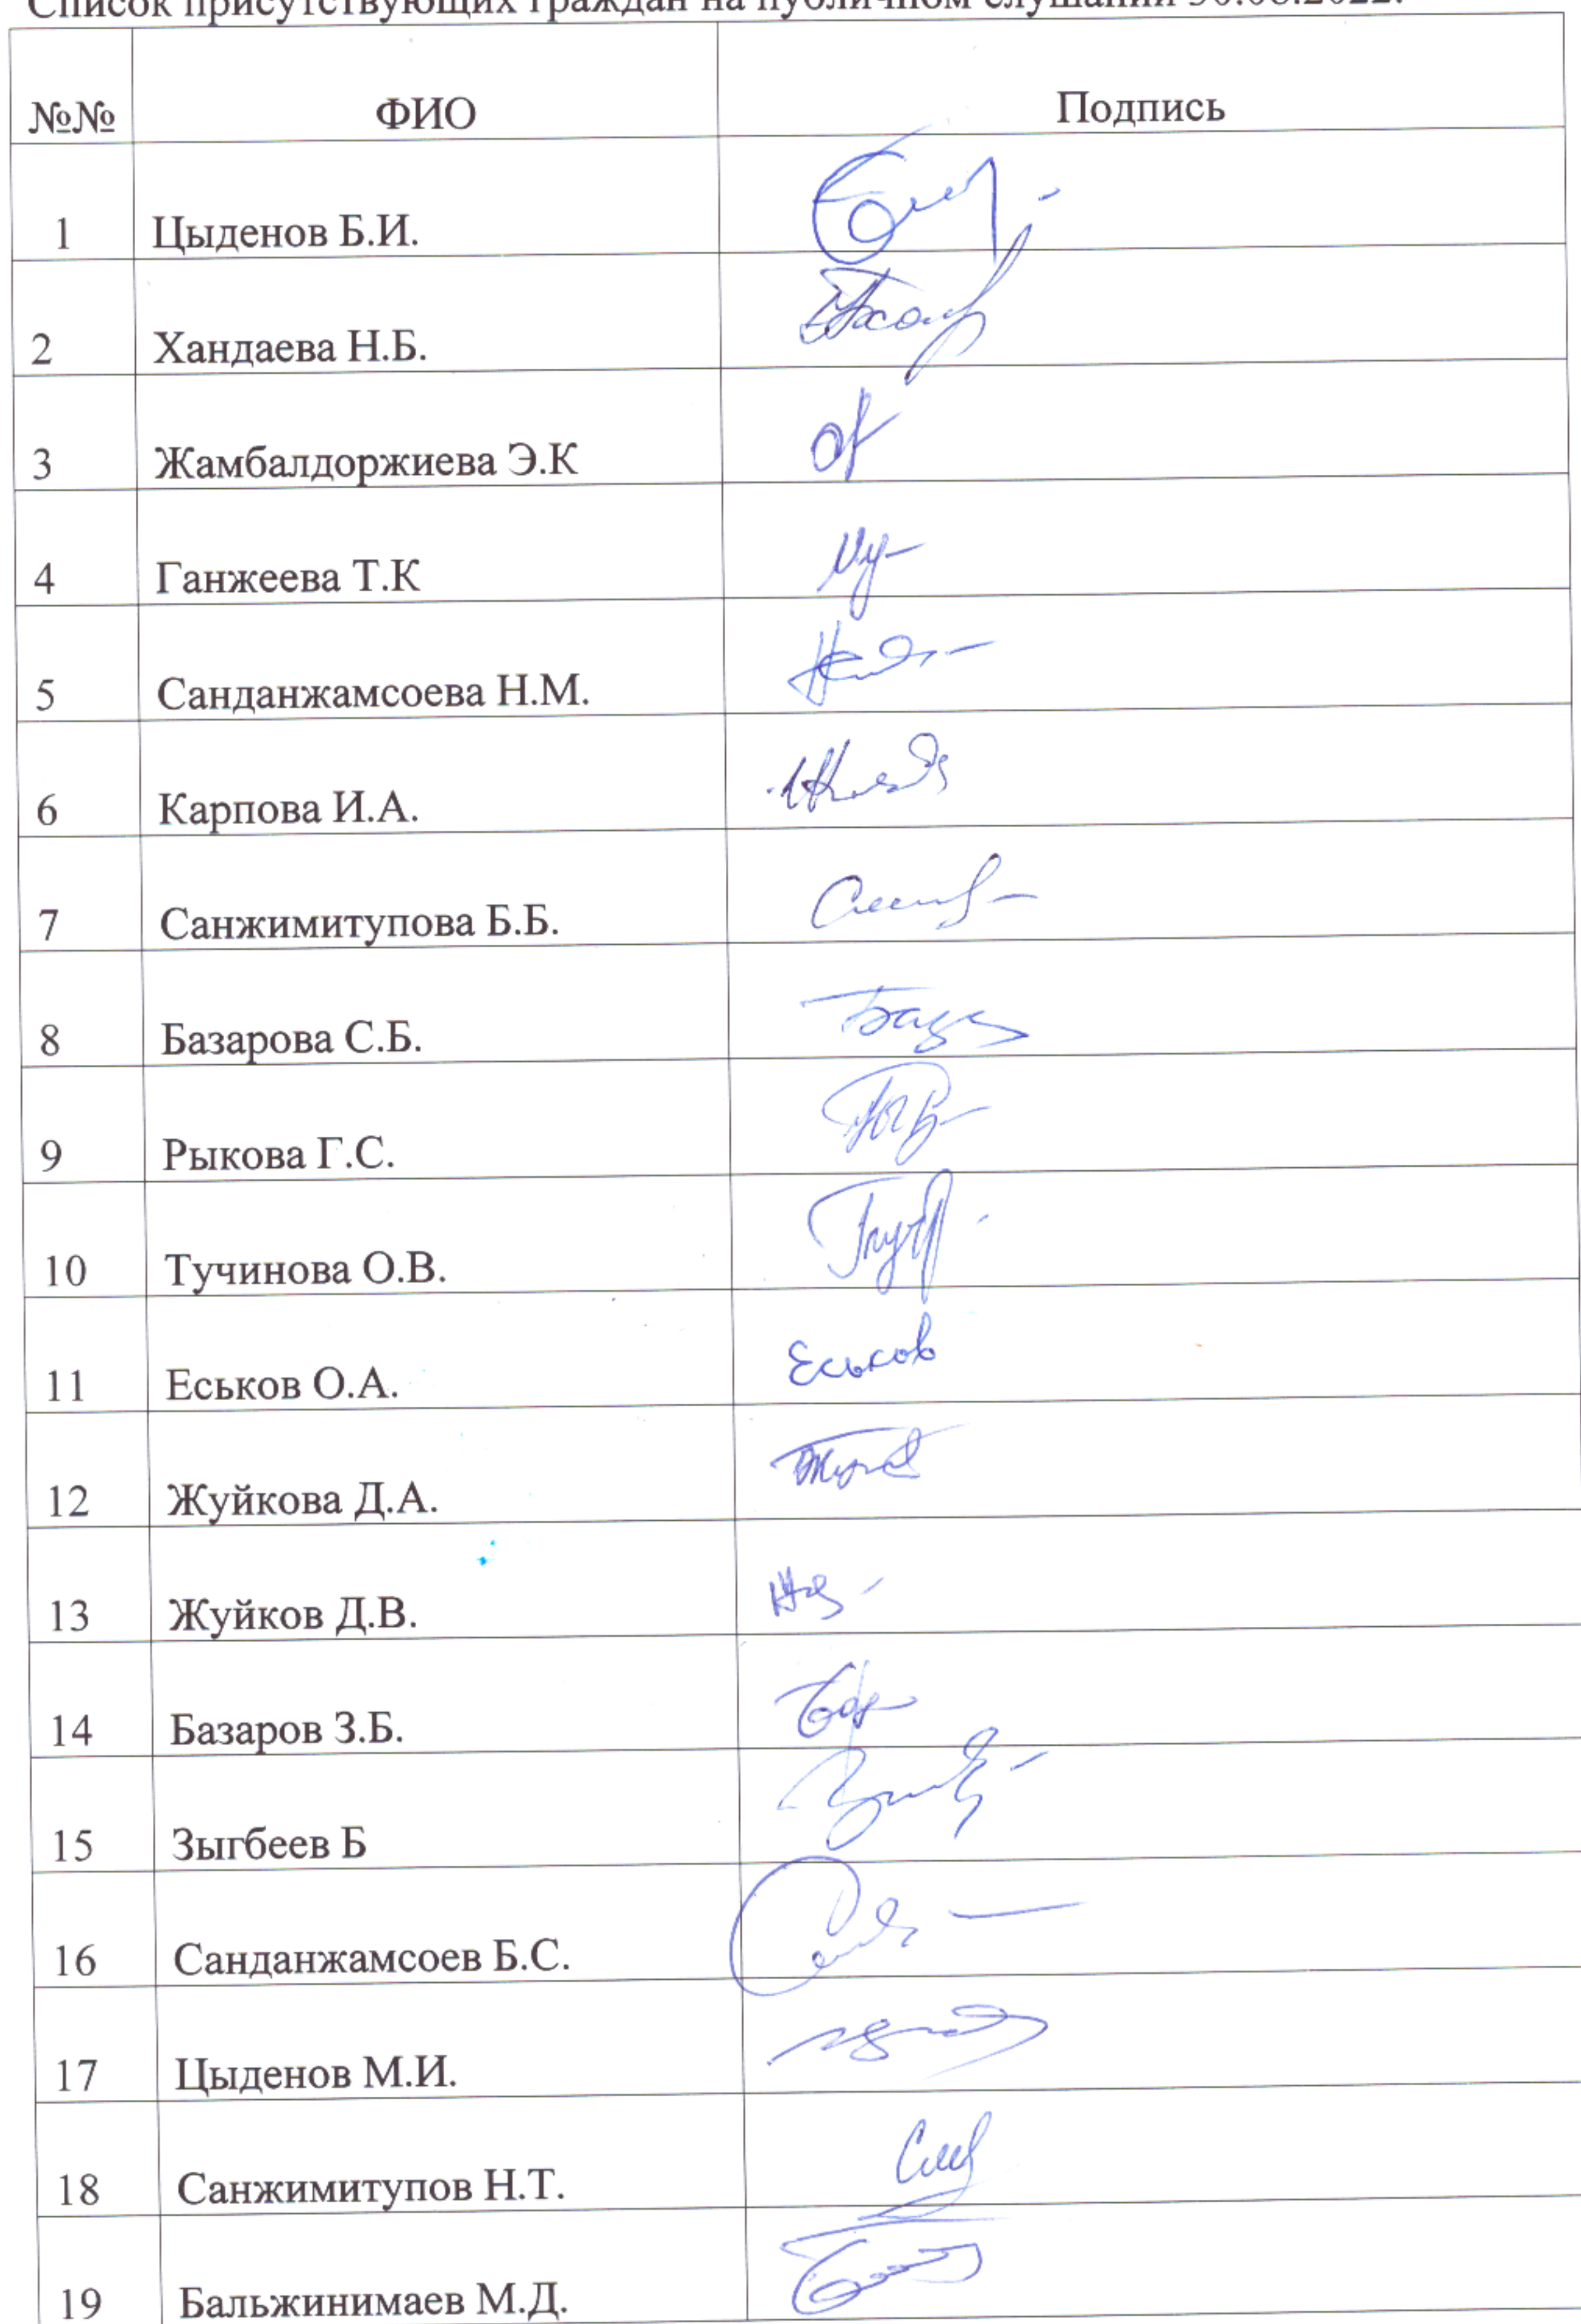 Список присутствующих граждан на публичном слушании 30.08.2022.
№№ ФИО Подпись
1 Цыденов Б.И.
2 Хандаева Н.Б.
3 Жамбалдоржиева Э.К
4 Ганжеева Т.К
5 Санданжамсоева Н.М.
6 Карпова И.А.
7 Санжимитупова Б.Б.
8 Базарова С.Б.
9 Рыкова Г.С.
10 Тучинова О.В.
11 Еськов О.А. Еськов
12 Жуйкова Д.А.
13 Жуйков Д.В.
14 Базаров З.Б.
15 Зыгбеев Б
16 Санданжамсоев Б.С.
17 Цыденов М.И.
18 Санжимитупов Н.Т.
19 Бальжинимаев М.Д.